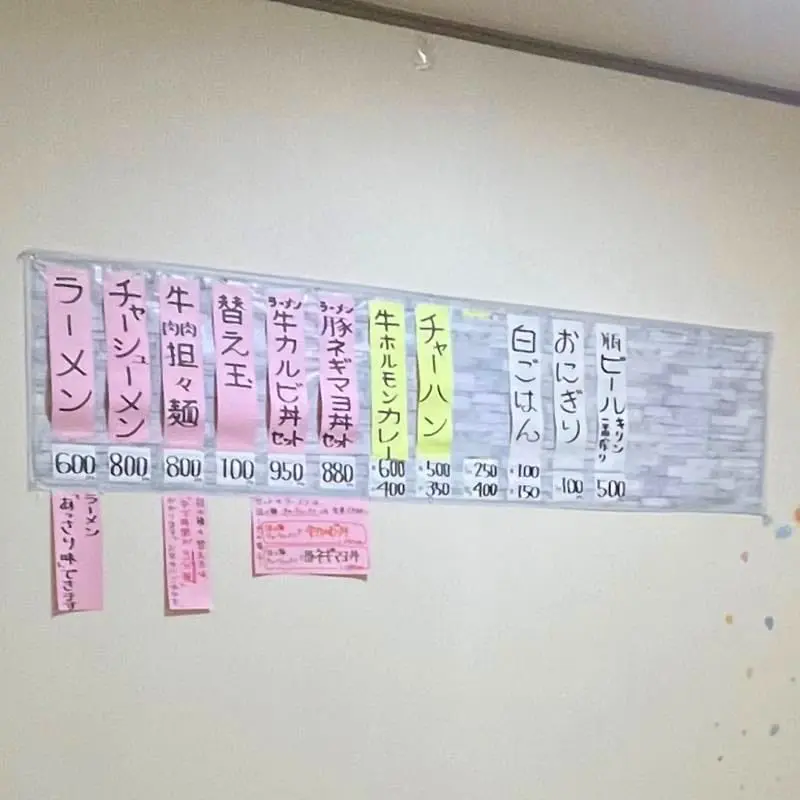 ラーメン
600
チャーシューメン
800
牛肉担々麺
800
替え玉
100
ラーメン
牛カルビ丼
セット
950
ラーメン
豚ネギマヨ丼
セット
880
牛ホルモンカレー
600
400
チャーハン
500
350
250
400
白ごはん
100
150
おにぎり
100
瓶ビール
キリン
500
ラーメン
「あっさり味」できます
豚ネギマヨ丼